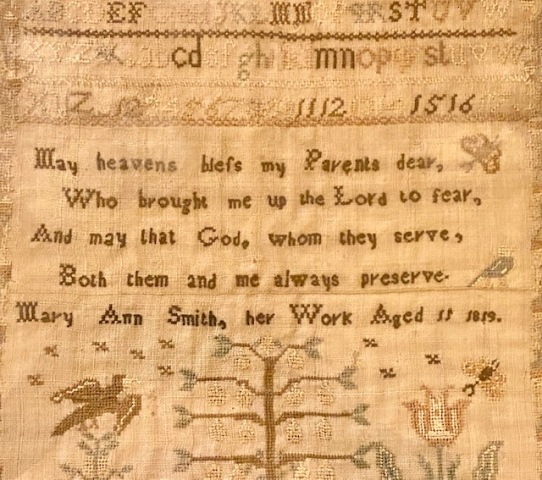 EF JKLMN QRSTUV
cd gh mnop st
Z 10 1112 1516
May heavens blefs my Parents dear,
Who brought me up the Lord to fear,
And may that God, whom they serve,
Both them and me always preserve.
Mary Ann Smith, her Work Aged 11 1819.